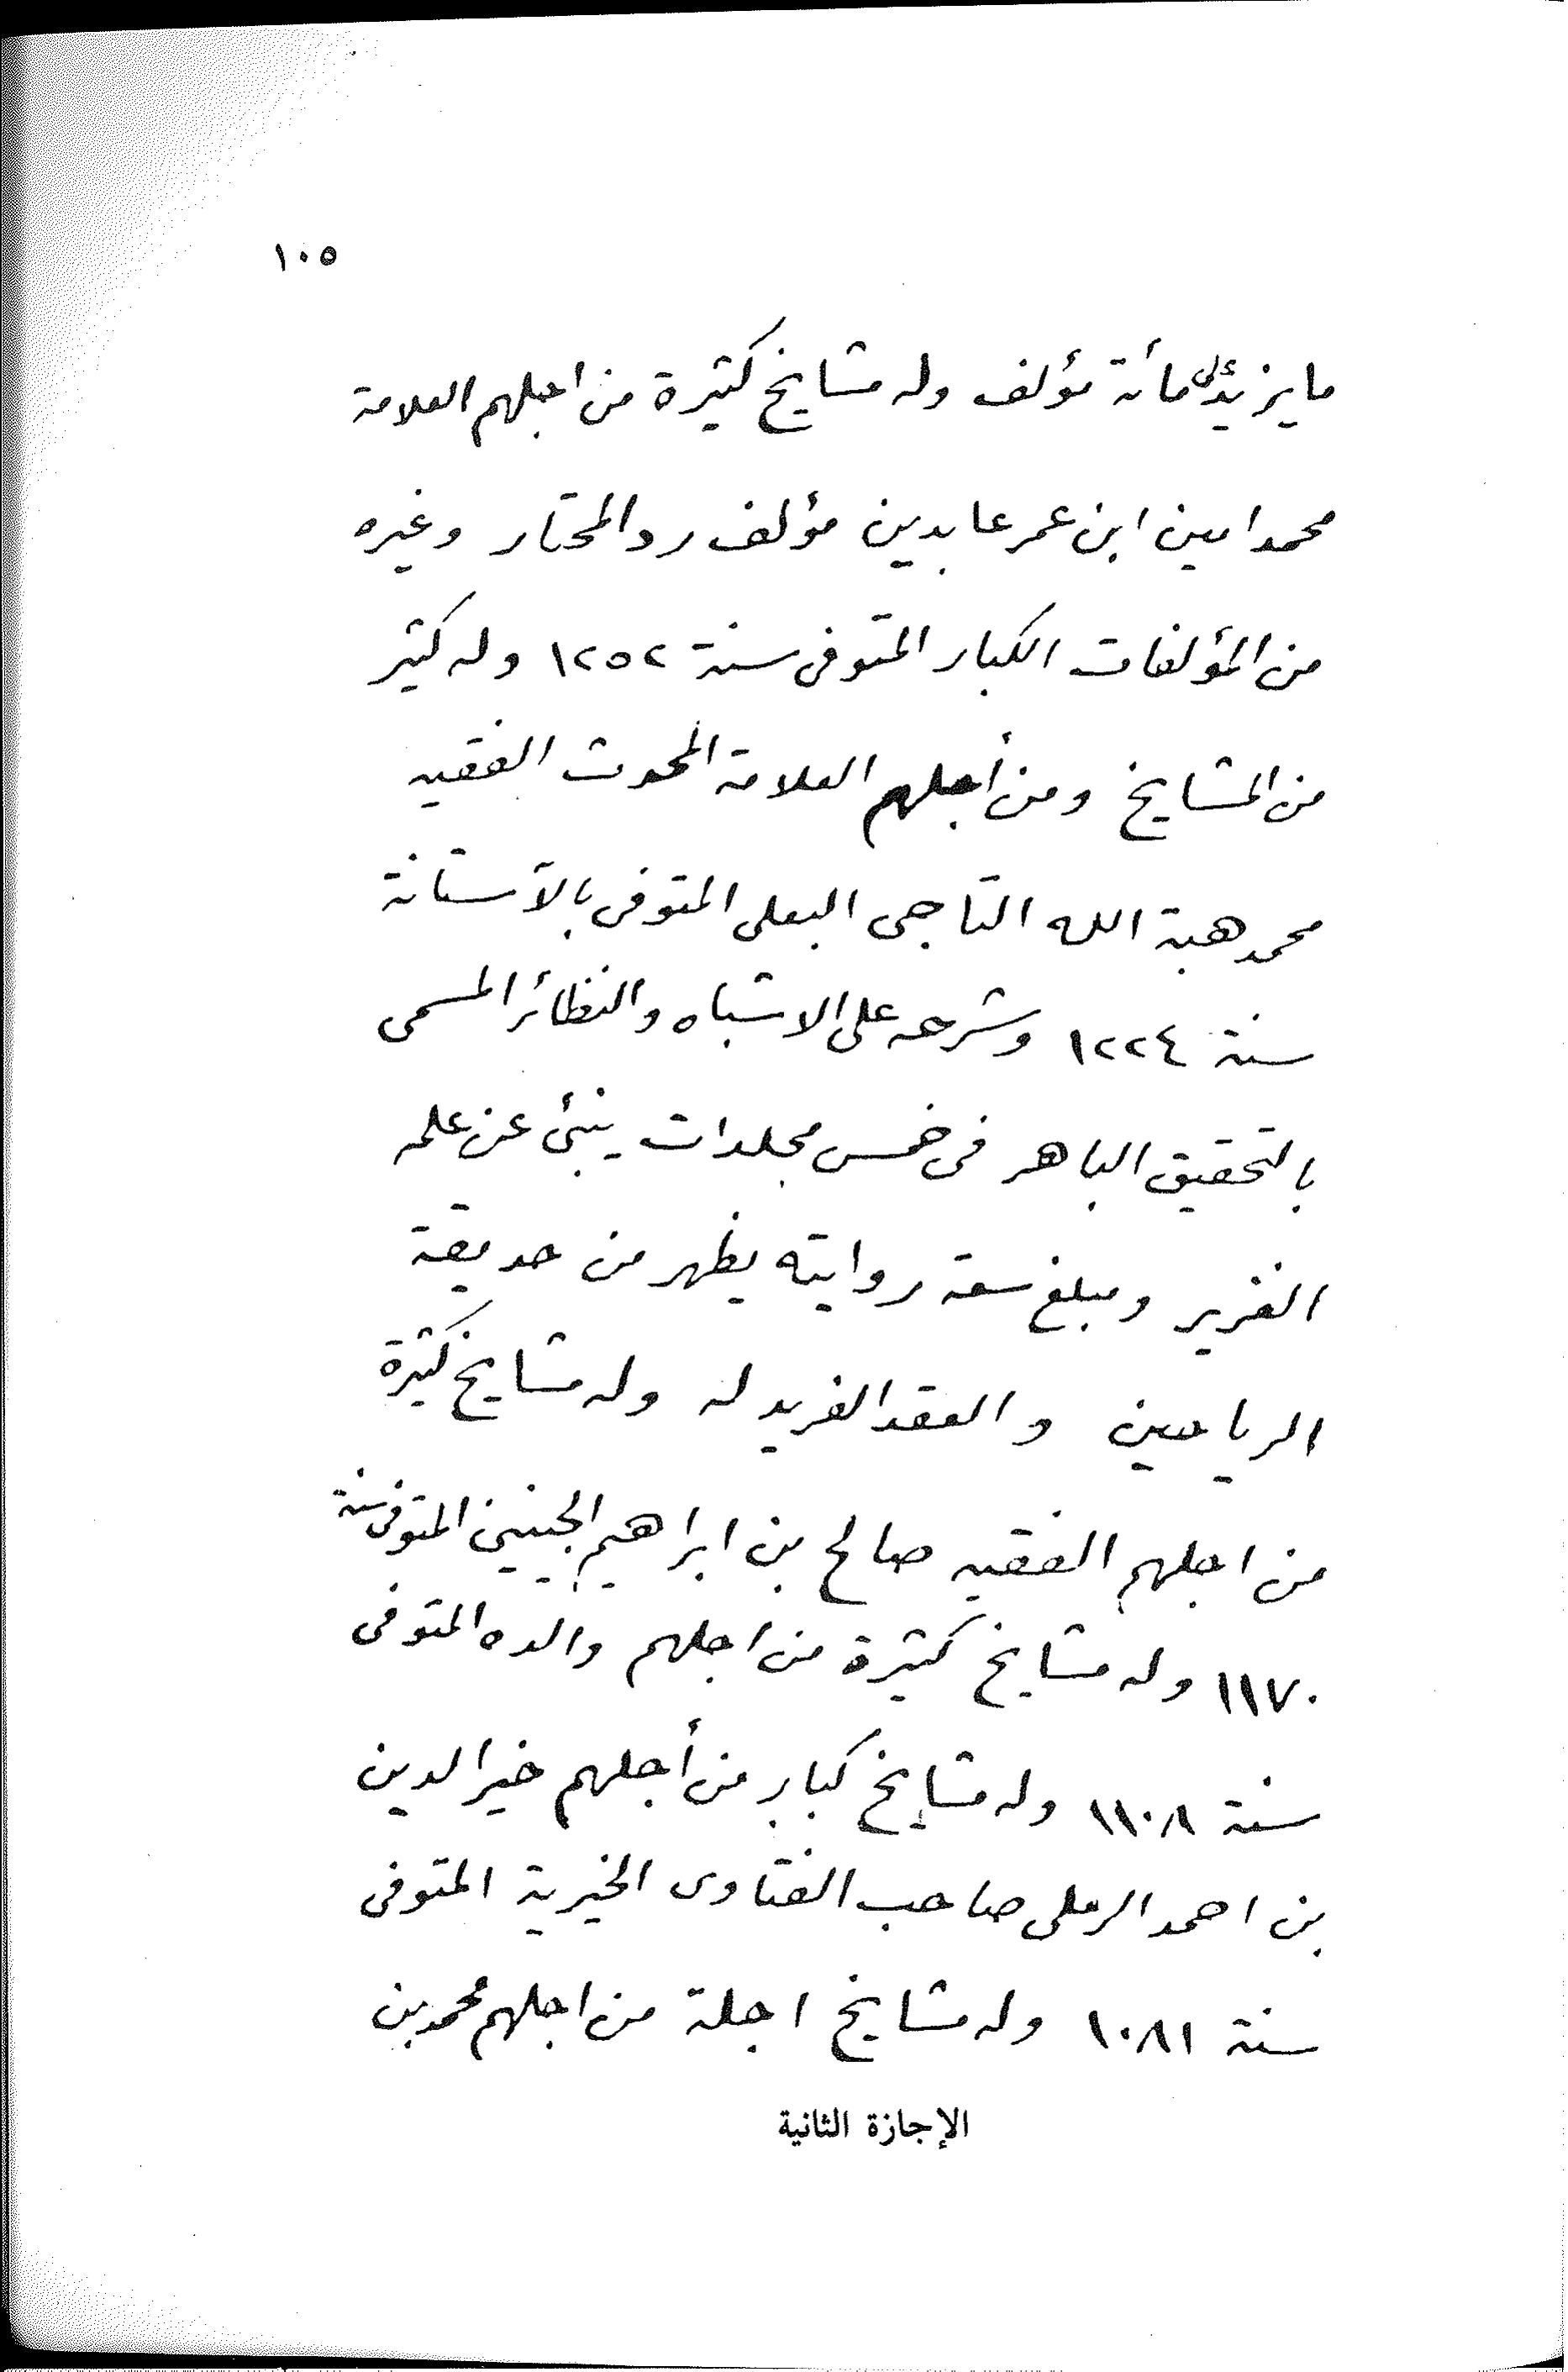 ١٠٥
ما يزيد على مأة مؤلف وله مشايخ كثيرة من اجلهم العلامة
محمد امين ابن عمر عابدين مؤلف رد المحتار وغيره
من المؤلفات الكبار المتوفى سنة ١٢٥٢ وله كثير
من المشايخ ومن أجلهم العلامة المحدث الفقيه
محمد هبة الله التاجى البعلى المتوفى بالآستانة
سنة ١٢٢٤ وشرحه على الاشباه والنظائر المسمى
بالتحقيق الباهر فى خمس مجلدات ينبئ عن علمه
الغزير ومبلغ سعة روايته يظهر من حديقة
الرياحين والعقد الفريد له وله مشايخ كثيرة
من اجلهم الفقيه صالح بن ابراهيم الجينينى المتوفى سنة
١١٧٠ وله مشايخ كثيرة من اجلهم والده المتوفى
سنة ١١٠٨ وله مشايخ كبار من أجلهم خير الدين
بن احمد الرملى صاحب الفتاوى الخيرية المتوفى
سنة ١٠٨١ وله مشايخ اجلة من اجلهم محمد بن
الإجازة الثانية